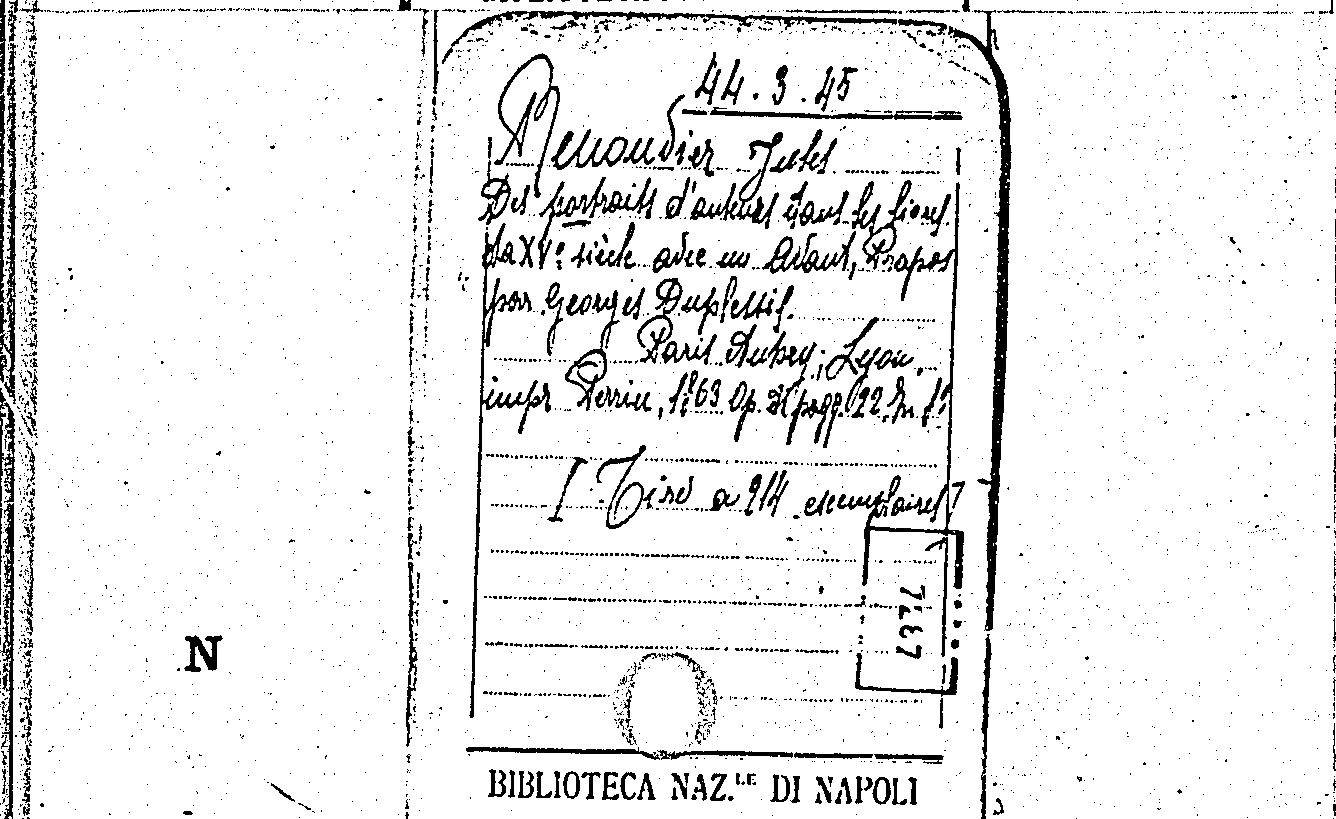 44.3.45
Renouvier Jules
Des portraits d'auteurs dans les livres
du XVe siècle avec un Avant, Propos
par Georges Duplessis.
Paris Aubry; Lyon,
impr Perrin, 1863 Op. di pagg. 22. In 8°
[Tiré a 214 exemplaires]
7237
N
BIBLIOTECA NAZ.LE DI NAPOLI